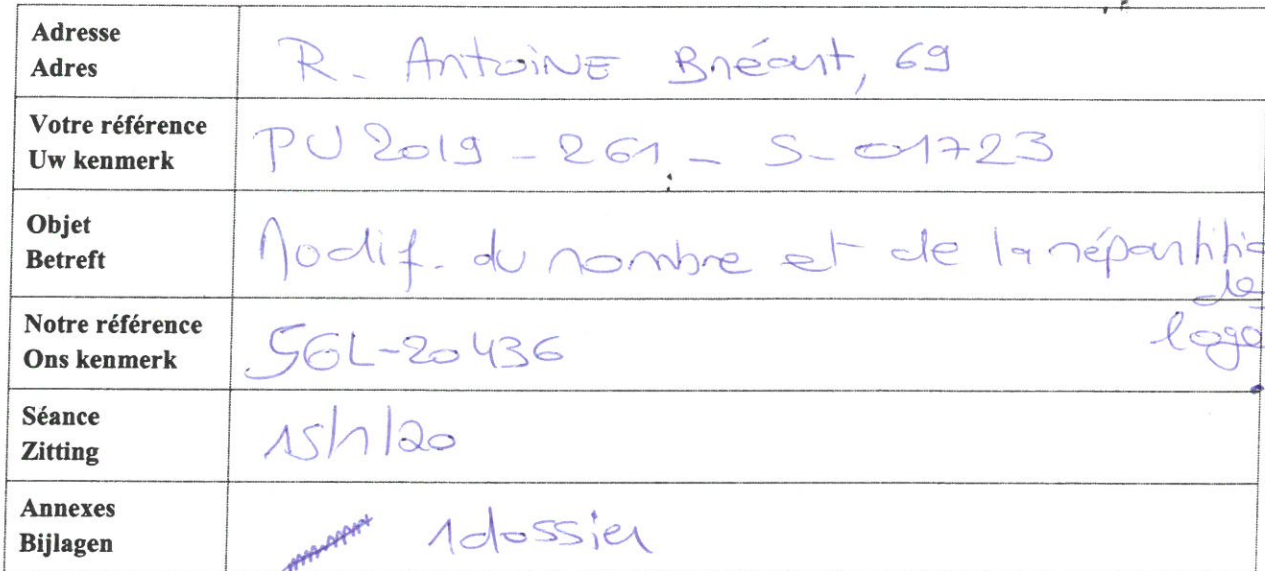 Adresse
Adres
R. Antoine Bréart, 69
Votre référence
Uw kenmerk
PU 2019 - 261 - S - 01723
Objet
Betreft
Modif. du nombre et de la répartitio
de
loge
Notre référence
Ons kenmerk
SGL-20436
Séance
Zitting
15/1/20
Annexes
Bijlagen
1 dossier